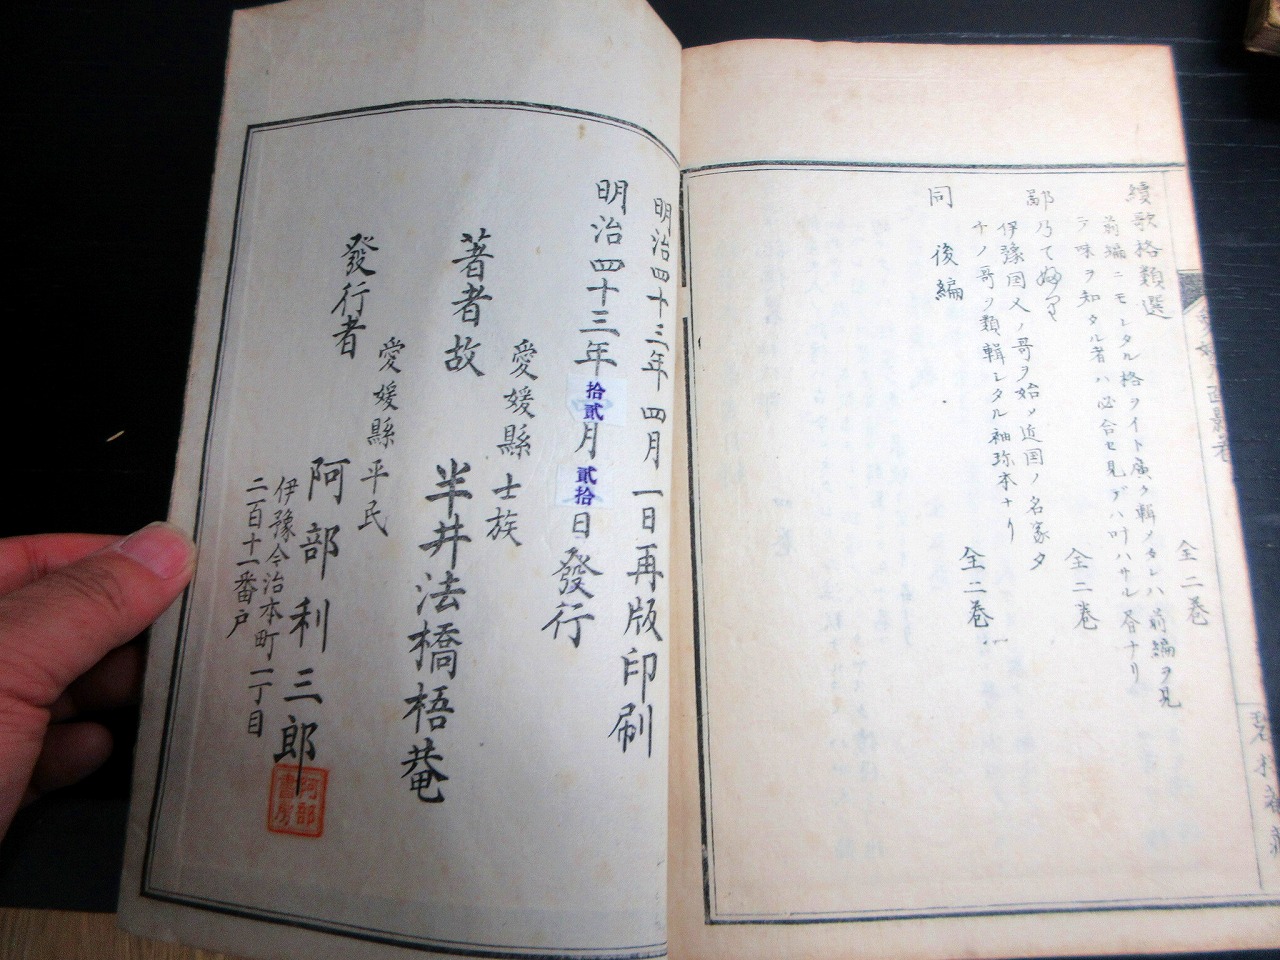 續歌格類選
全二巻
前編ニモレタル格ヲイト廣ク輯メタレハ前編ヲ見
テ味ヲ知タル者ハ必合セ見デハ叶ハサル巻ナリ
鄙乃て婦り
全二巻
伊豫国人ノ哥ヲ始メ近国ノ名家タ
チノ哥ヲ類輯シタル袖珎本ナリ
同 後編
全二巻
明治四十三年四月一日再版印刷
明治四十三年拾貳月貳拾日發行
愛媛縣士族
著者故 半井法橋梧菴
愛媛縣平民
發行者 阿部利三郎
伊豫今治本町一丁目
二百十一番戸
阿部書房